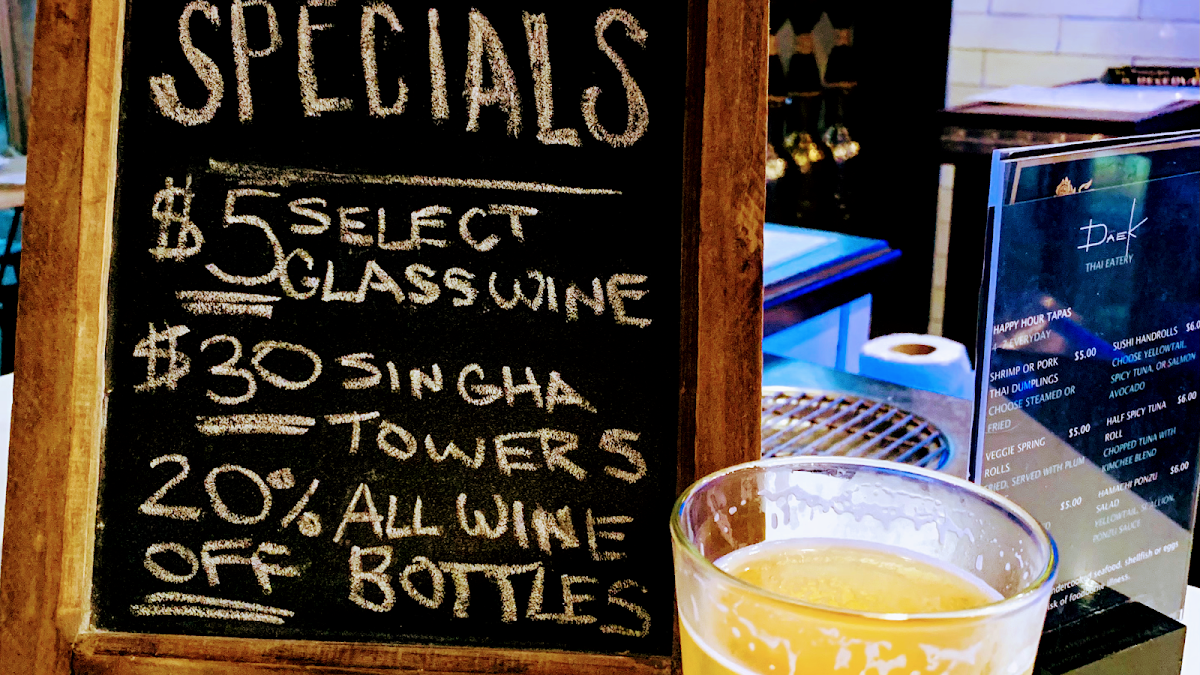 SPECIALS
$5 SELECT
GLASS WINE
$30 SINGHA
TOWERS
20% ALL WINE
OFF BOTTLES
DAEK
THAI EATERY
HAPPY HOUR TAPAS
EVERYDAY
SHRIMP OR PORK $5.00
THAI DUMPLINGS
CHOOSE STEAMED OR
FRIED
VEGGIE SPRING $5.00
ROLLS
FRIED, SERVED WITH PLUM
$5.00
SUSHI HANDROLLS $6.0
CHOOSE YELLOWTAIL,
SPICY TUNA, OR SALMON
AVOCADO
HALF SPICY TUNA $6.00
ROLL
CHOPPED TUNA WITH
KIMCHEE BLEND
HAMACHI PONZU $6.00
SALAD
YELLOWTAIL, SCALLION,
PONZU SAUCE
seafood, shellfish or eggs
illness.